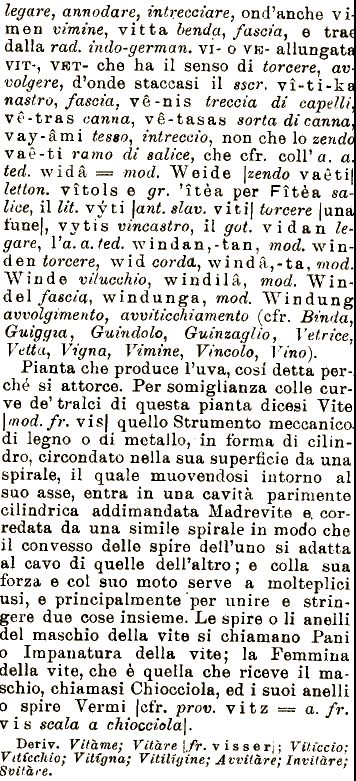 legare, annodare, intrecciare, ond'anche vi-
men vimine, vitta benda, fascia, e trae
dalla rad. indo-german. VI- o VE- allungata
VIT-, VET- che ha il senso di torcere, av-
volgere, d'onde staccasi il sscr. vî-ti-ka
nastro, fascia, vê-nis treccia di capelli,
vê-tras canna, vê-tasas sorta di canna,
vay-âmi tesso, intreccio, non che lo zendo
vaê-ti ramo di salice, che cfr. coll'a. a.
ted. widâ = mod. Weide |zendo vaêti|
letton. vîtols e gr. 'itèa per Fitèa sa-
lice, il lit. výti |ant. slav. viti| torcere |una
fune|, vytis vincastro, il got. vidan le-
gare, l'a. a. ted. windan, -tan, mod. win-
den torcere, wid corda, windâ, -ta, mod.
Winde vilucchio, windilâ, mod. Win-
del fascia, windunga, mod. Windung
avvolgimento, avviticchiamento (cfr. Binda,
Guiggia, Guindolo, Guinzaglio, Vetrice,
Vetta, Vigna, Vimine, Vincolo, Vino).
Pianta che produce l'uva, così detta per-
ché si attorce. Per somiglianza colle cur-
ve de' tralci di questa pianta dicesi Vite
|mod. fr. vis| quello Strumento meccanico
di legno o di metallo, in forma di cilin-
dro, circondato nella sua superficie da una
spirale, il quale muovendosi intorno al
suo asse, entra in una cavità parimente
cilindrica addimandata Madrevite e cor-
redata da una simile spirale in modo che
il convesso delle spire dell'uno si adatta
al cavo di quelle dell'altro; e colla sua
forza e col suo moto serve a molteplici
usi, e principalmente per unire e strin-
gere due cose insieme. Le spire o li anelli
del maschio della vite si chiamano Pani
o Impanatura della vite; la Femmina
della vite, che è quella che riceve il ma-
schio, chiamasi Chiocciola, ed i suoi anelli
o spire Vermi |cfr. prov. vitz = a. fr.
vis scala a chiocciola|.
Deriv. Vitàme; Vitàre |fr. visser|; Viticcio;
Viticchio; Vitigna; Vitiligine; Avvitàre; Invitàre;
Svitàre.